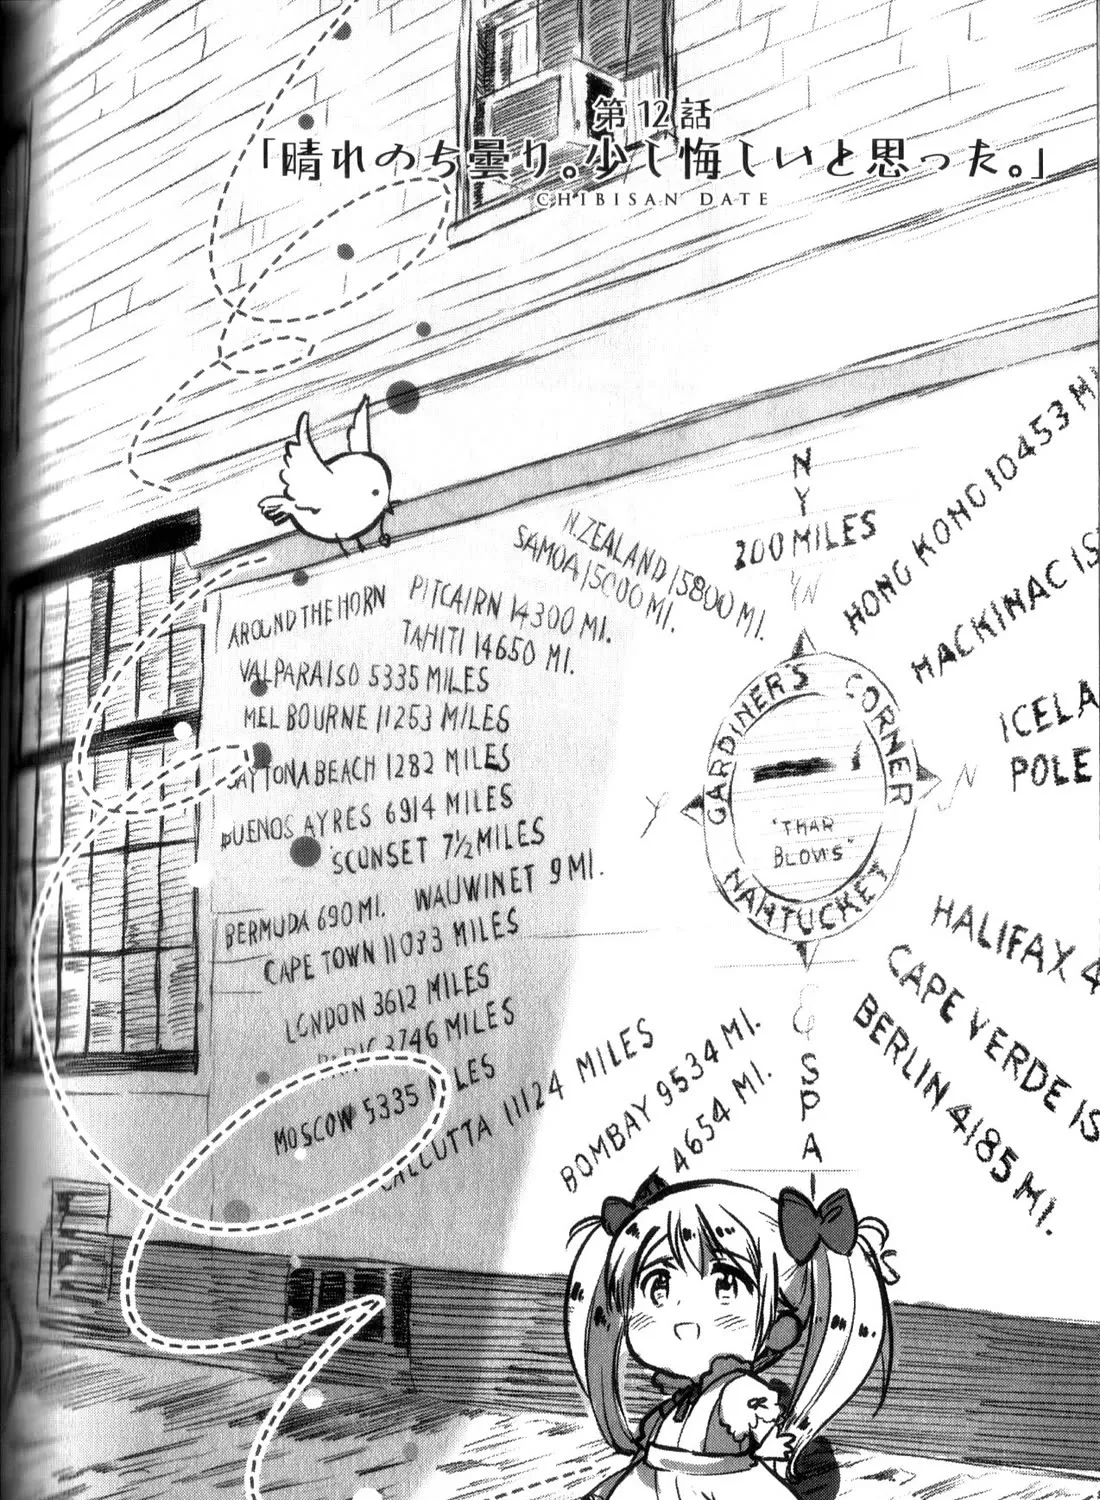 第12話
「晴れのち曇り。少し悔しいと思った。」
CHIBISAN DATE
N
Y
200 MILES
N. ZEALAND 15800 MI.
SAMOA 15000 MI.
HONG KONG 10453 M
MACKINAC IS
ICELA
POLE
AROUND THE HORN
PITCAIRN 14300 MI.
TAHITI 14650 MI.
VALPARAISO 5335 MILES
MELBOURNE 11253 MILES
DAYTONA BEACH 1282 MILES
BUENOS AYRES 6914 MILES
'SCONSET 7½ MILES
BERMUDA 690 MI.
WAUWINET 9 MI.
CAPE TOWN 11033 MILES
LONDON 3612 MILES
3746 MILES
MOSCOW 5335 MILES
CALCUTTA 11124 MILES
BOMBAY 9534 MI.
4654 MI.
GARDINER'S CORNER
"THAR
BLOWS"
NANTUCKET
HALIFAX 4
CAPE VERDE IS
BERLIN 4185 MI.
S
P
A